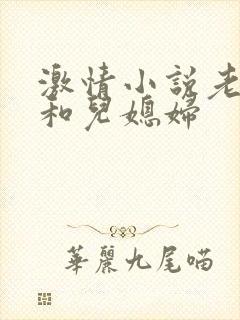 激情小說老
和兒媳婦
華麗九尾喵